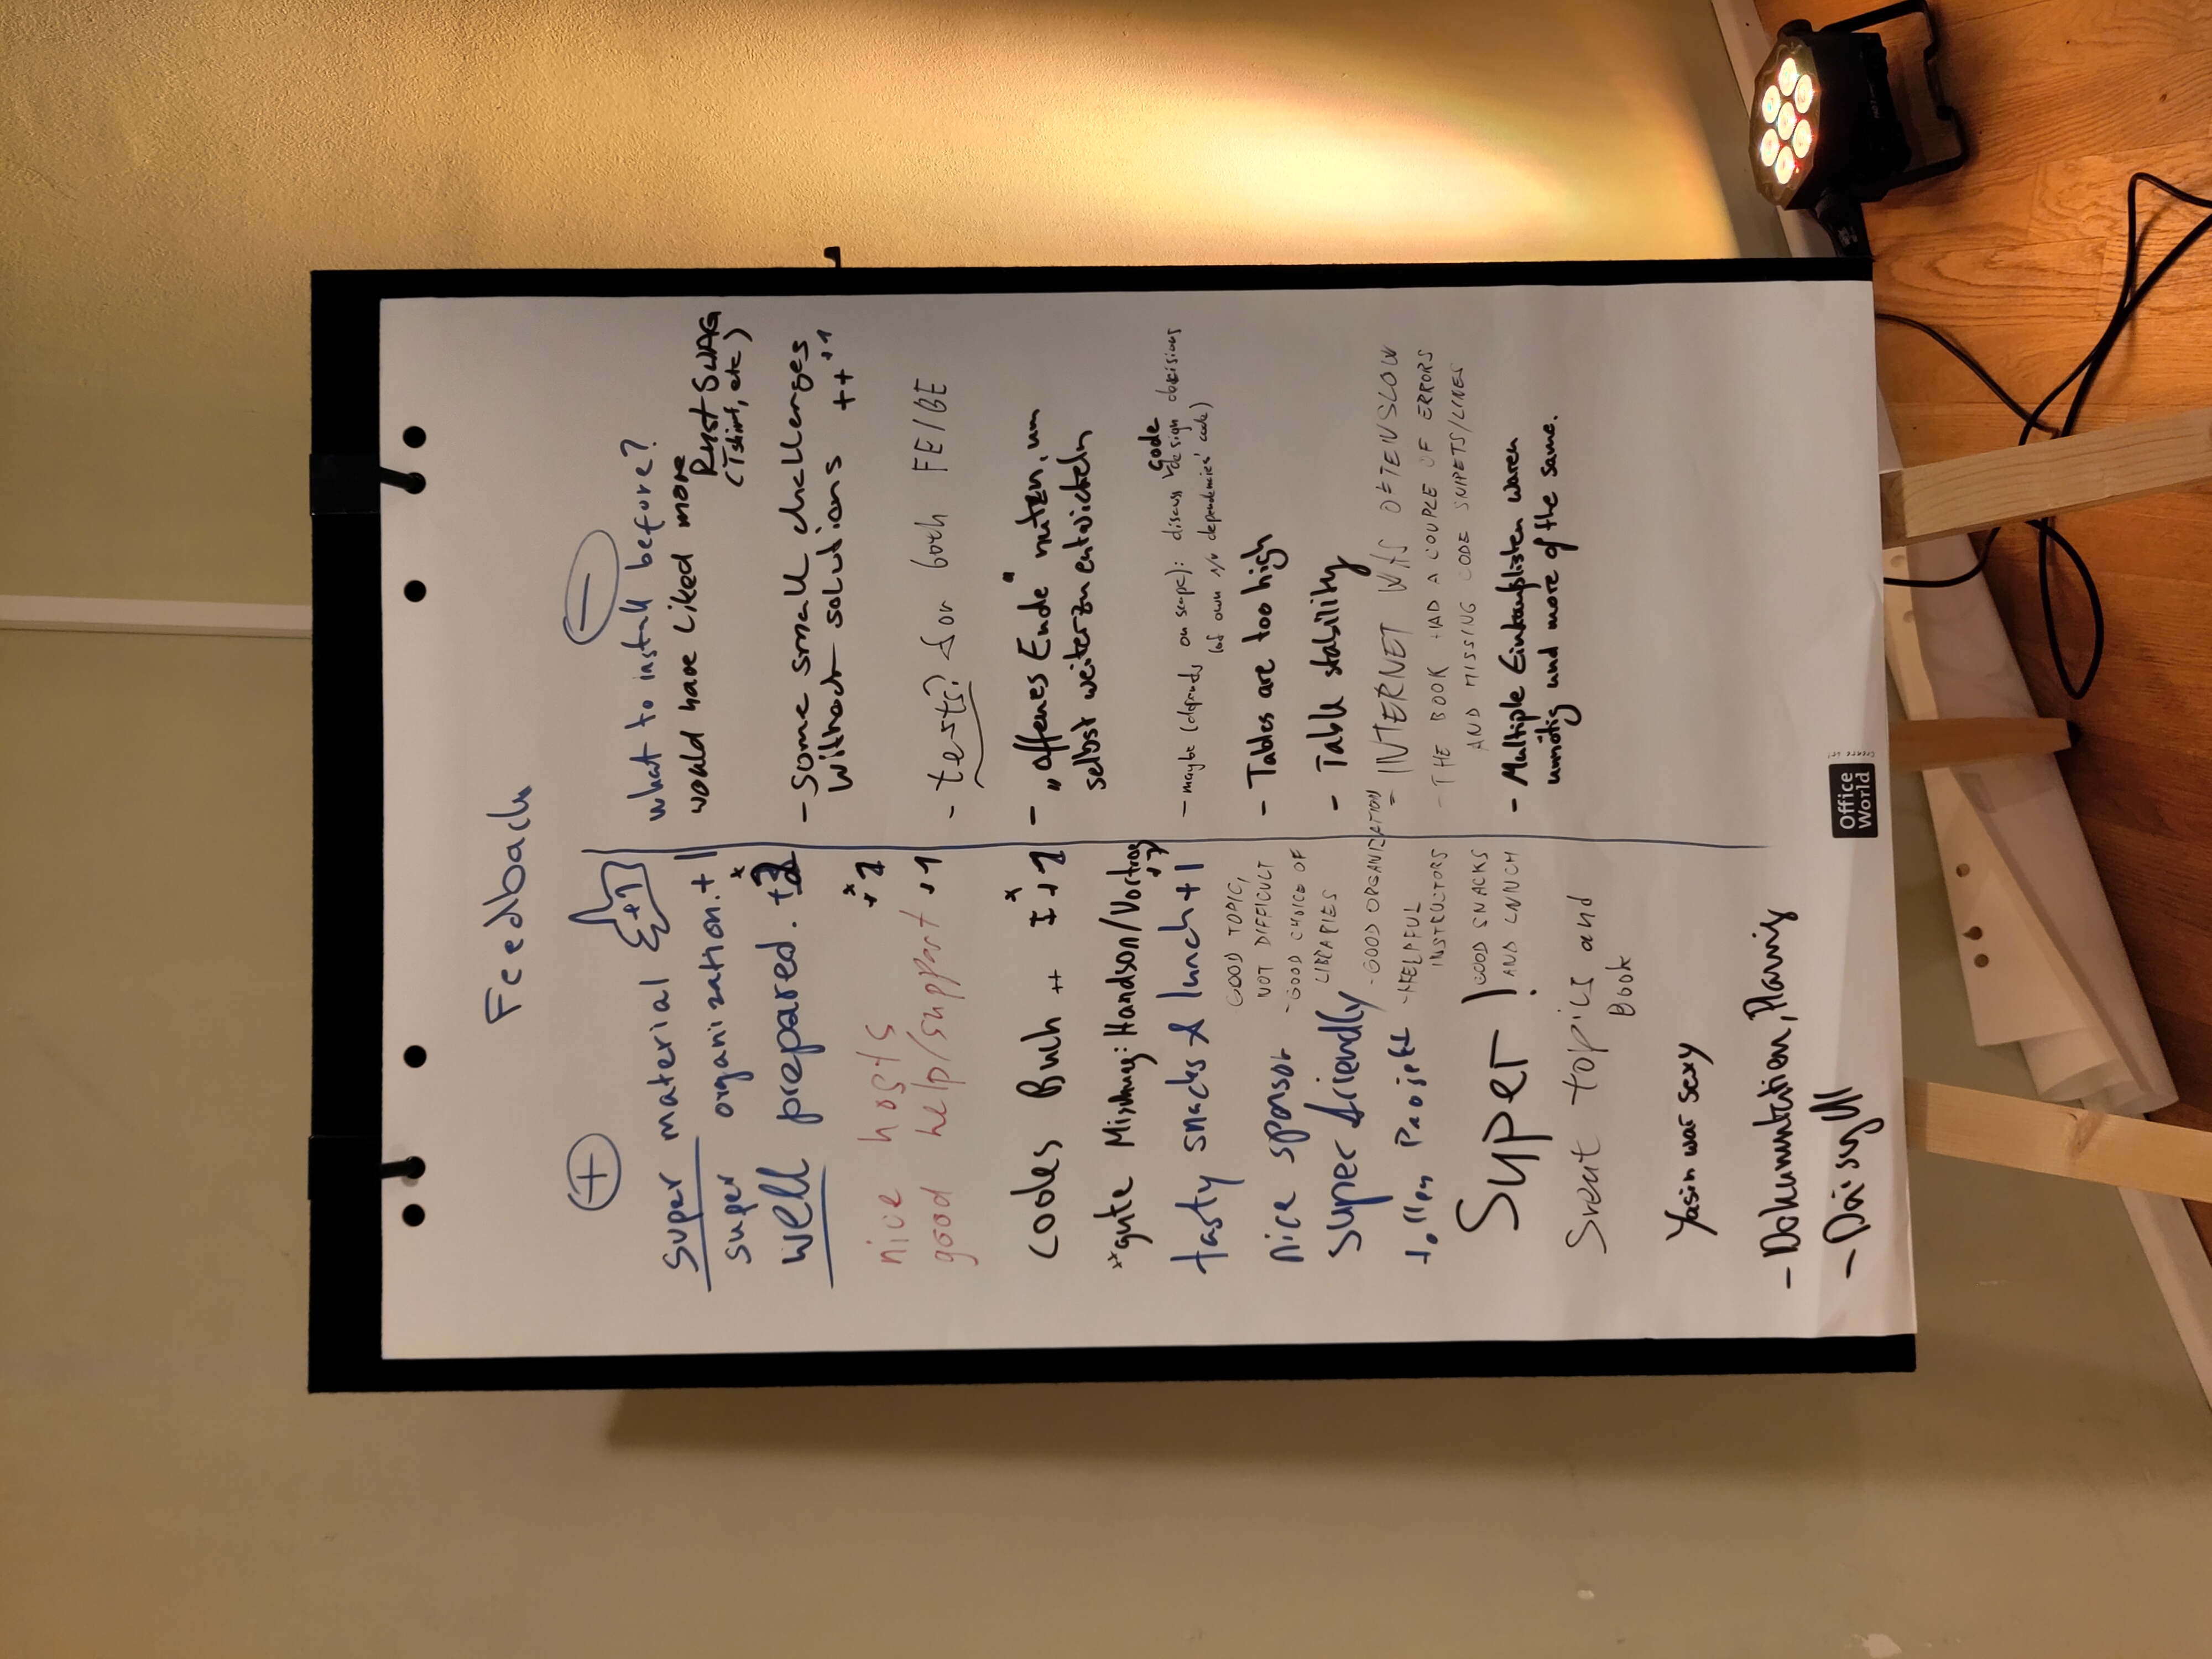 Feedback
+
super material +1
super organization. +1
well prepared.
nice hosts
good help/support +1
cooles Buch ++
++ gute Mischung: Handson/Vortrag
tasty snacks & lunch +1
nice sponsor
super friendly
tolles Projekt
Super!
GOOD TOPIC,
NOT DIFFICULT
- GOOD CHOICE OF
LIBRARIES
- GOOD ORGANIZATION
- HELPFUL
INSTRUCTORS
GOOD SNACKS
AND LUNCH
Great topics and
Book
Yasin war sexy
- Dokumentation, Planung
- DaisyUI
-
what to install before?
would have liked more
Rust SWAG
(Tshirt, etc)
- some small challenges
without solutions ++ +1
- tests? for both FE/BE
- „offenes Ende“ nutzen, um
selbst weiterzuentwickeln
- maybe (depends on scope): discuss code design decisions
(of own n/r dependencies' code)
- Tables are too high
- Table stability
- INTERNET WAS OFTEN SLOW
- THE BOOK HAD A COUPLE OF ERRORS
AND MISSING CODE SNIPETS/LINES
- Multiple Einkaufslisten waren
unnötig und more of the same.
Office
World